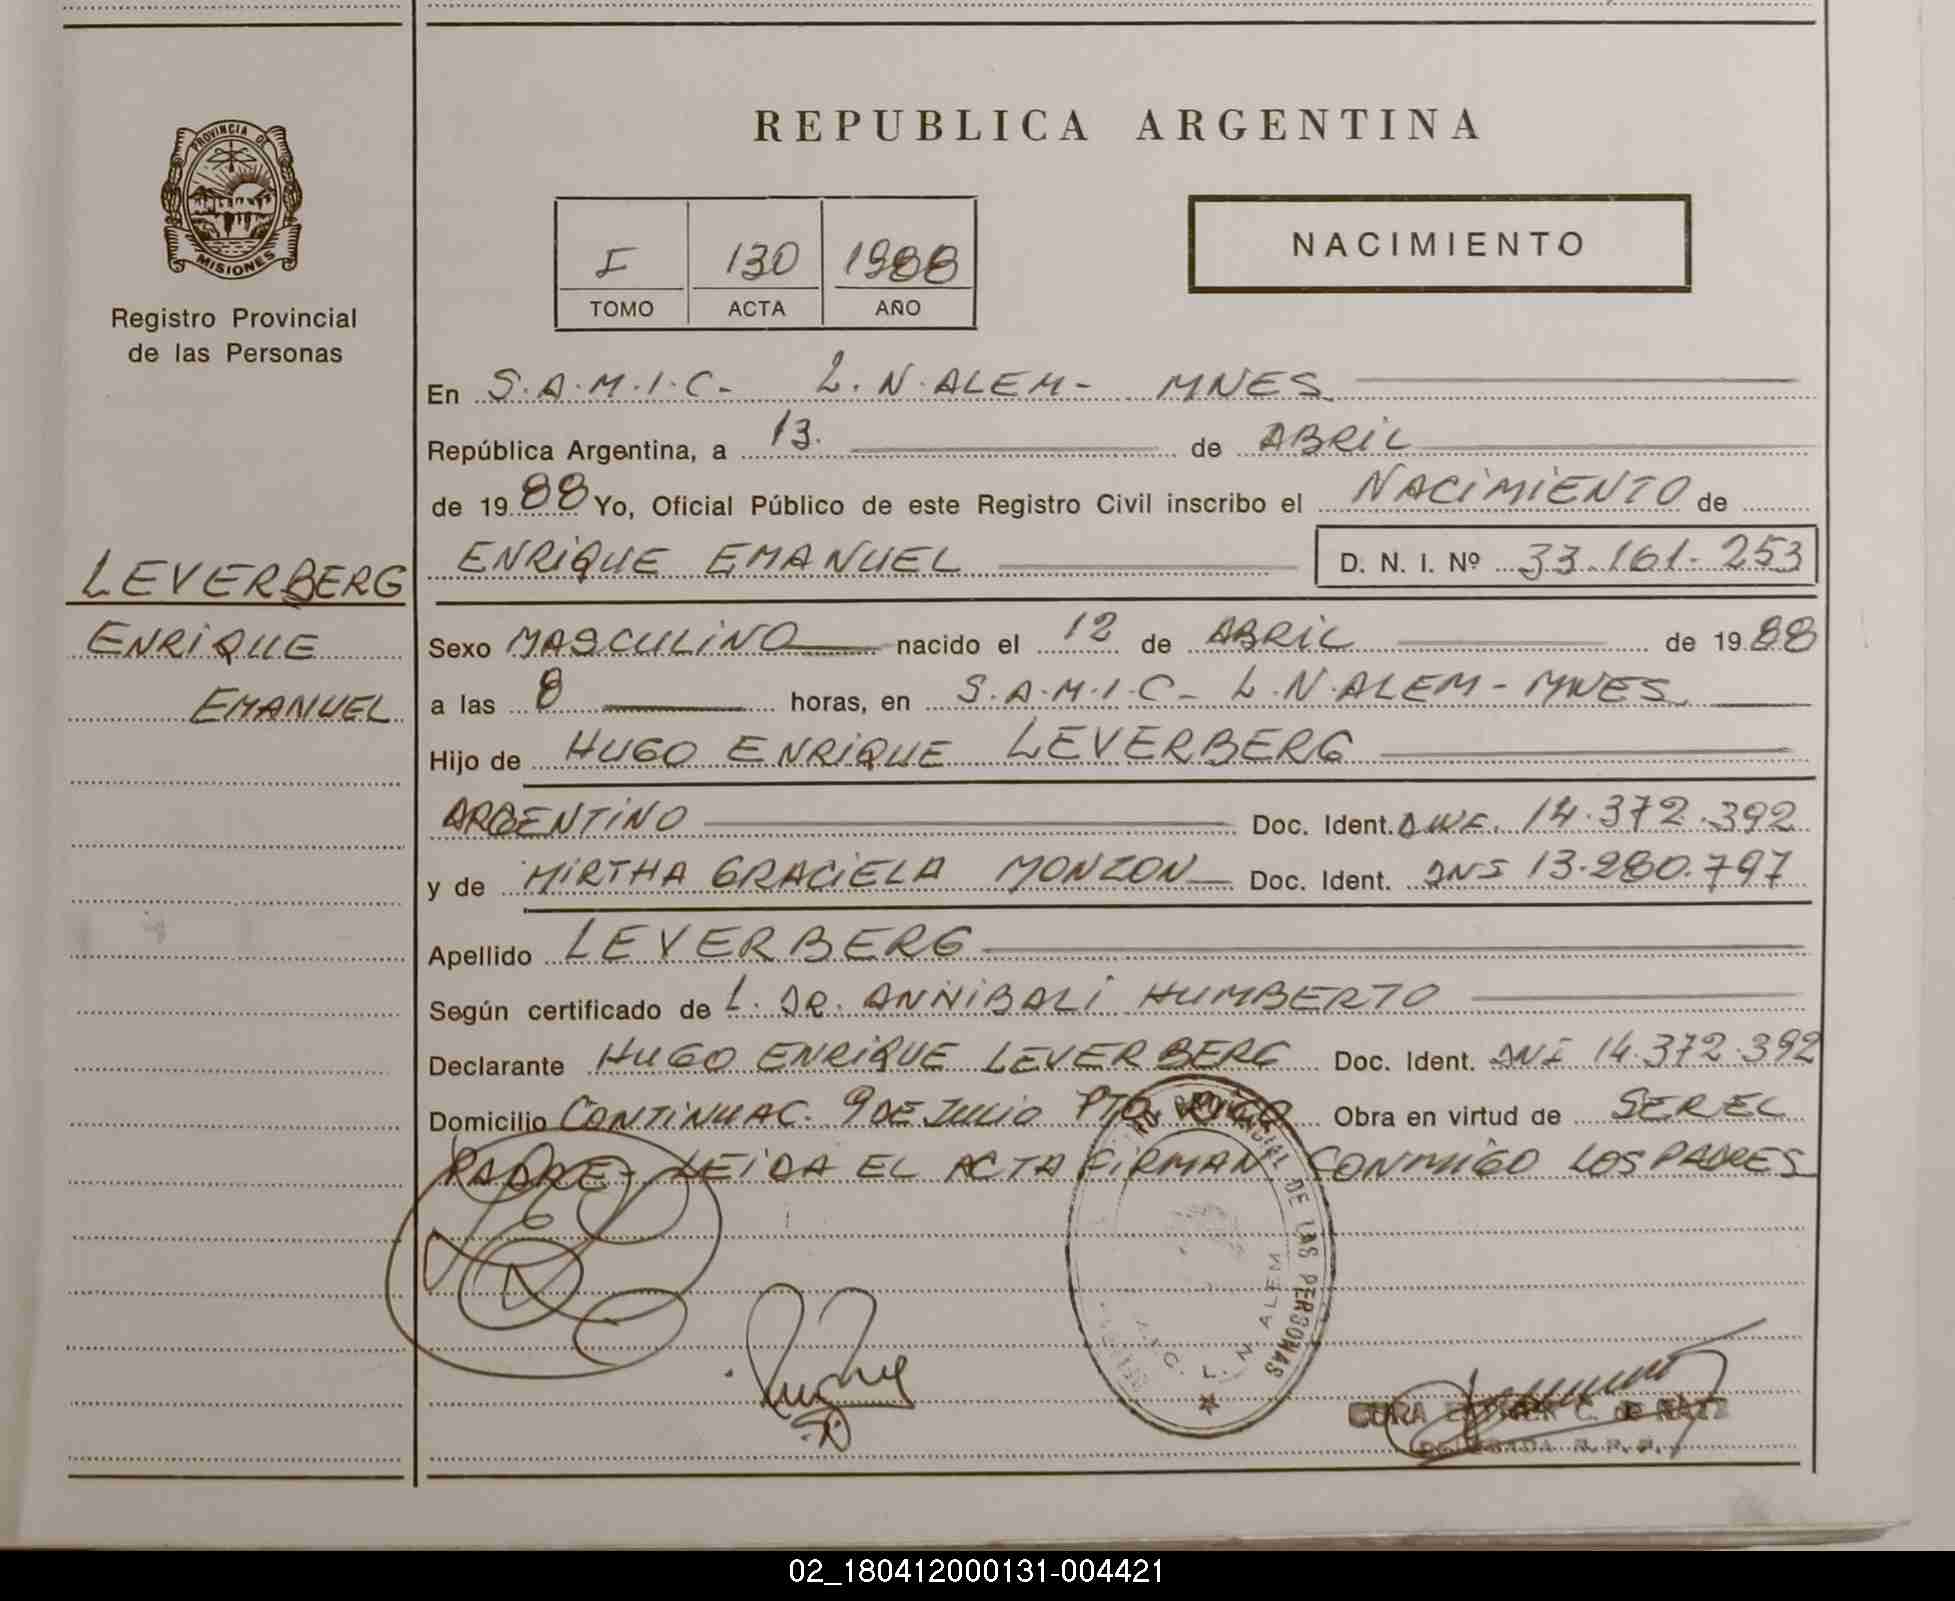 REPUBLICA ARGENTINA
PROVINCIA DE
MISIONES
Registro Provincial
de las Personas
I 130 1988
TOMO ACTA AÑO
NACIMIENTO
En S.A.M.I.C- L.N.ALEM- MNES
República Argentina, a 13. de ABRIL
de 1988 Yo, Oficial Público de este Registro Civil inscribo el NACIMIENTO de
ENRIQUE EMANUEL D. N. I. Nº 33.161.253
LEVERBERG
ENRIQUE
EMANUEL
Sexo MASCULINO nacido el 12 de ABRIL de 1988
a las 8 horas, en S.A.M.I.C- L.N.ALEM-MNES
Hijo de HUGO ENRIQUE LEVERBERG
ARGENTINO Doc. Ident. DNI. 14.372.392
y de MIRTHA GRACIELA MONZON Doc. Ident. DNI 13.280.797
Apellido LEVERBERG
Según certificado de L. DR. ANNIBALI HUMBERTO
Declarante HUGO ENRIQUE LEVERBERG Doc. Ident. DNI 14.372.392
Domicilio CONTINUAC. 9 DE JULIO PTO RICO Obra en virtud de SER EL
PADRE- LEIDA EL ACTA FIRMAN CONMIGO LOS PADRES
DE LAS PERSONAS
L. N. ALEM
C. de
02_180412000131-004421